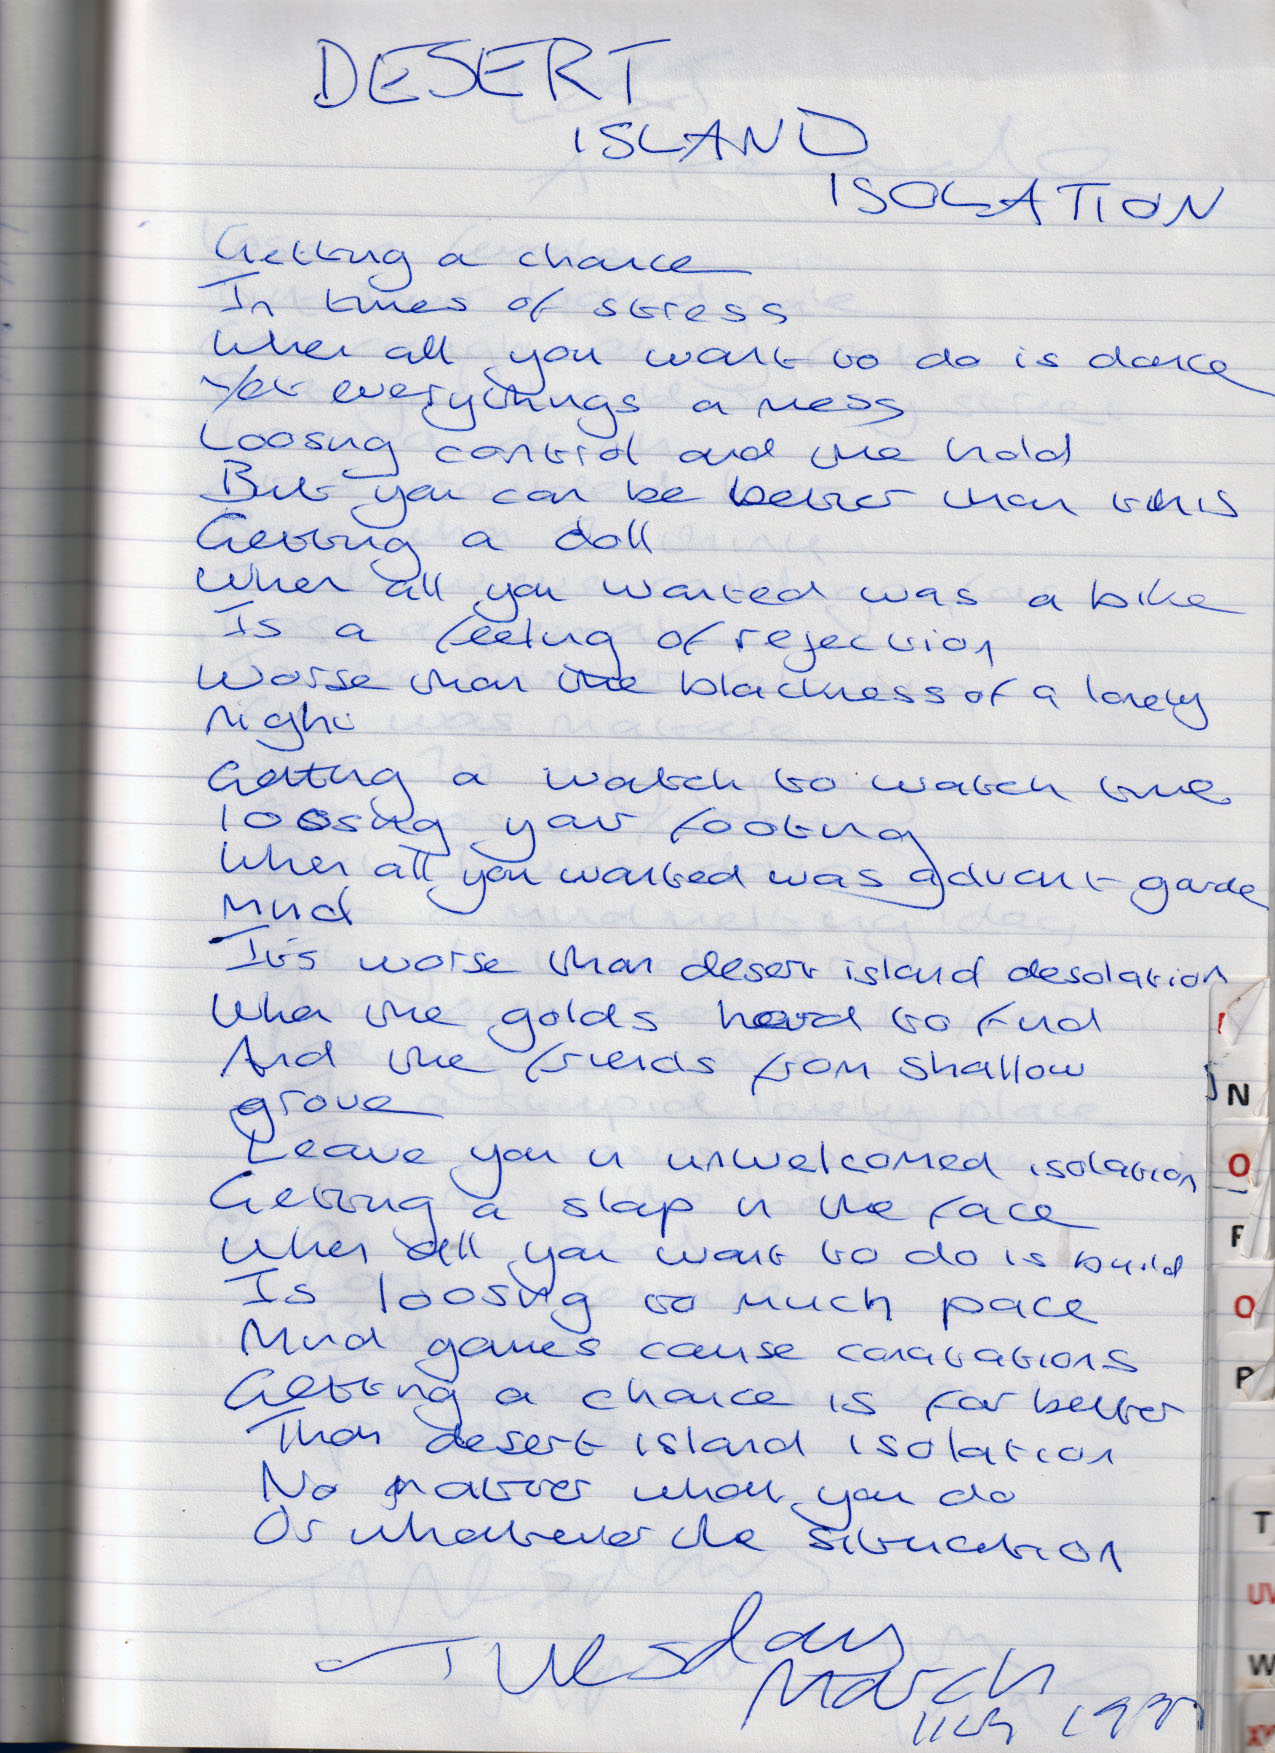 DESERT
ISLAND
ISOLATION
Getting a chance
In times of stress
When all you want to do is dance
Yet everythings a mess
Loosing control and the hold
But you can be better than this
Getting a doll
When all you wanted was a bike
Is a feeling of rejection
Worse than the blackness of a lonely
night
Getting a watch to watch time
loosing your footing
When all you wanted was advant-garde
mind
It's worse than desert island desolation
When the golds hard to find
And the friends from shallow
grove
Leave you in unwelcomed isolation
Getting a slap in the face
When all you want to do is build
Is loosing to much pace
Mind games cause
Getting a chance is far better
Than desert island isolation
No matter what you do
Or whatever the situation
Tuesday
March
11th
N
O
P
O
P
T
UV
W
XY